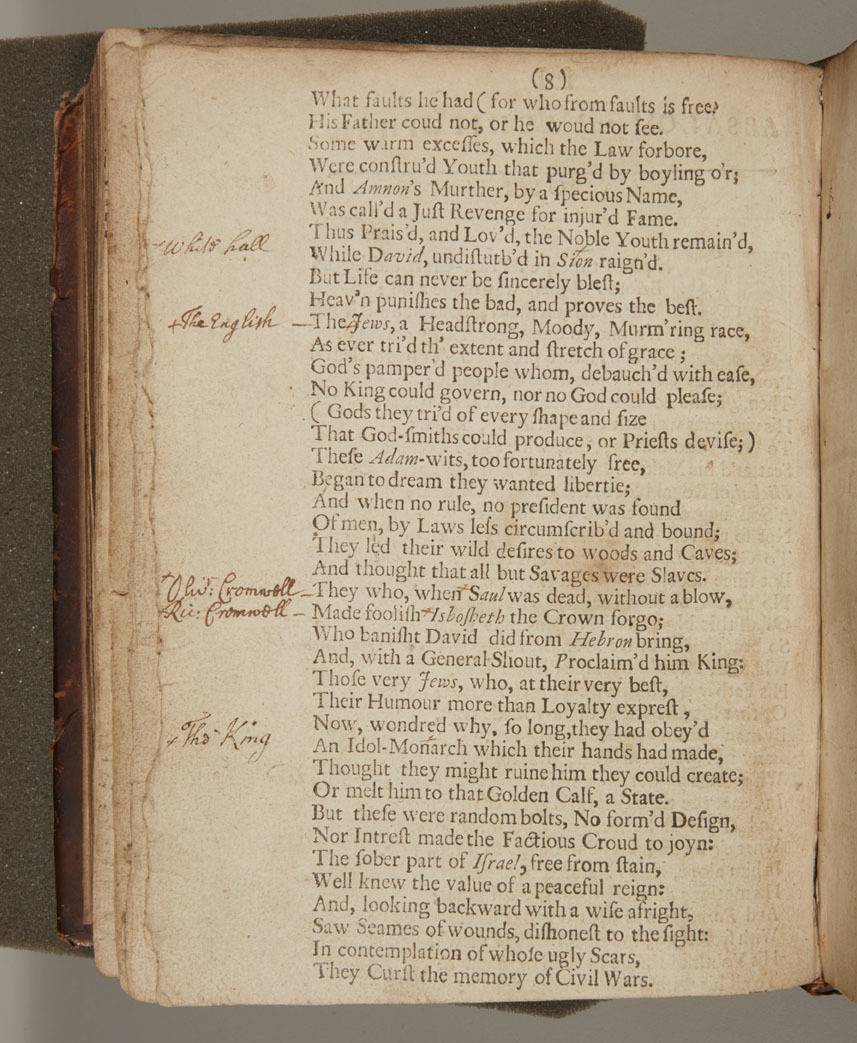 (8)
What faults he had (for who from faults is free?
His Father coud not, or he woud not ſee.
Some warm exceſſes, which the Law forbore,
Were conſtru'd Youth that purg'd by boyling o'r;
And Amnon's Murther, by a ſpecious Name,
Was call'd a Juſt Revenge for injur'd Fame.
Thus Prais'd, and Lov'd, the Noble Youth remain'd,
White hall
While David, undiſtutb'd in Sion raign'd.
But Life can never be ſincerely bleſt;
Heav'n puniſhes the bad, and proves the beſt.
The English
The Jews, a Headſtrong, Moody, Murm'ring race,
As ever tri'd th' extent and ſtretch of grace;
God's pamper'd people whom, debauch'd with eaſe,
No King could govern, nor no God could pleaſe;
(Gods they tri'd of every ſhape and ſize
That God-ſmiths could produce, or Prieſts deviſe;)
Theſe Adam-wits, too fortunately free,
Began to dream they wanted libertie;
And when no rule, no preſident was found
Of men, by Laws leſs circumſcrib'd and bound;
They led their wild deſires to woods and Caves;
And thought that all but Savages were Slaves.
Oliv: Cromwell
They who, when Saul was dead, without a blow,
Ric: Cromwell
Made fooliſh Isboſheth the Crown forgo;
Who baniſht David did from Hebron bring,
And, with a General Shout, Proclaim'd him King:
Thoſe very Jews, who, at their very beſt,
Their Humour more than Loyalty expreſt,
Now, wondred why, ſo long, they had obey'd
The King
An Idol-Monarch which their hands had made,
Thought they might ruine him they could create;
Or melt him to that Golden Calf, a State.
But theſe were random bolts, No form'd Deſign,
Nor Intreſt made the Factious Croud to joyn:
The ſober part of Iſrael, free from ſtain,
Well knew the value of a peaceful reign:
And, looking backward with a wiſe afright,
Saw Seames of wounds, diſhoneſt to the ſight:
In contemplation of whoſe ugly Scars,
They Curſt the memory of Civil Wars.